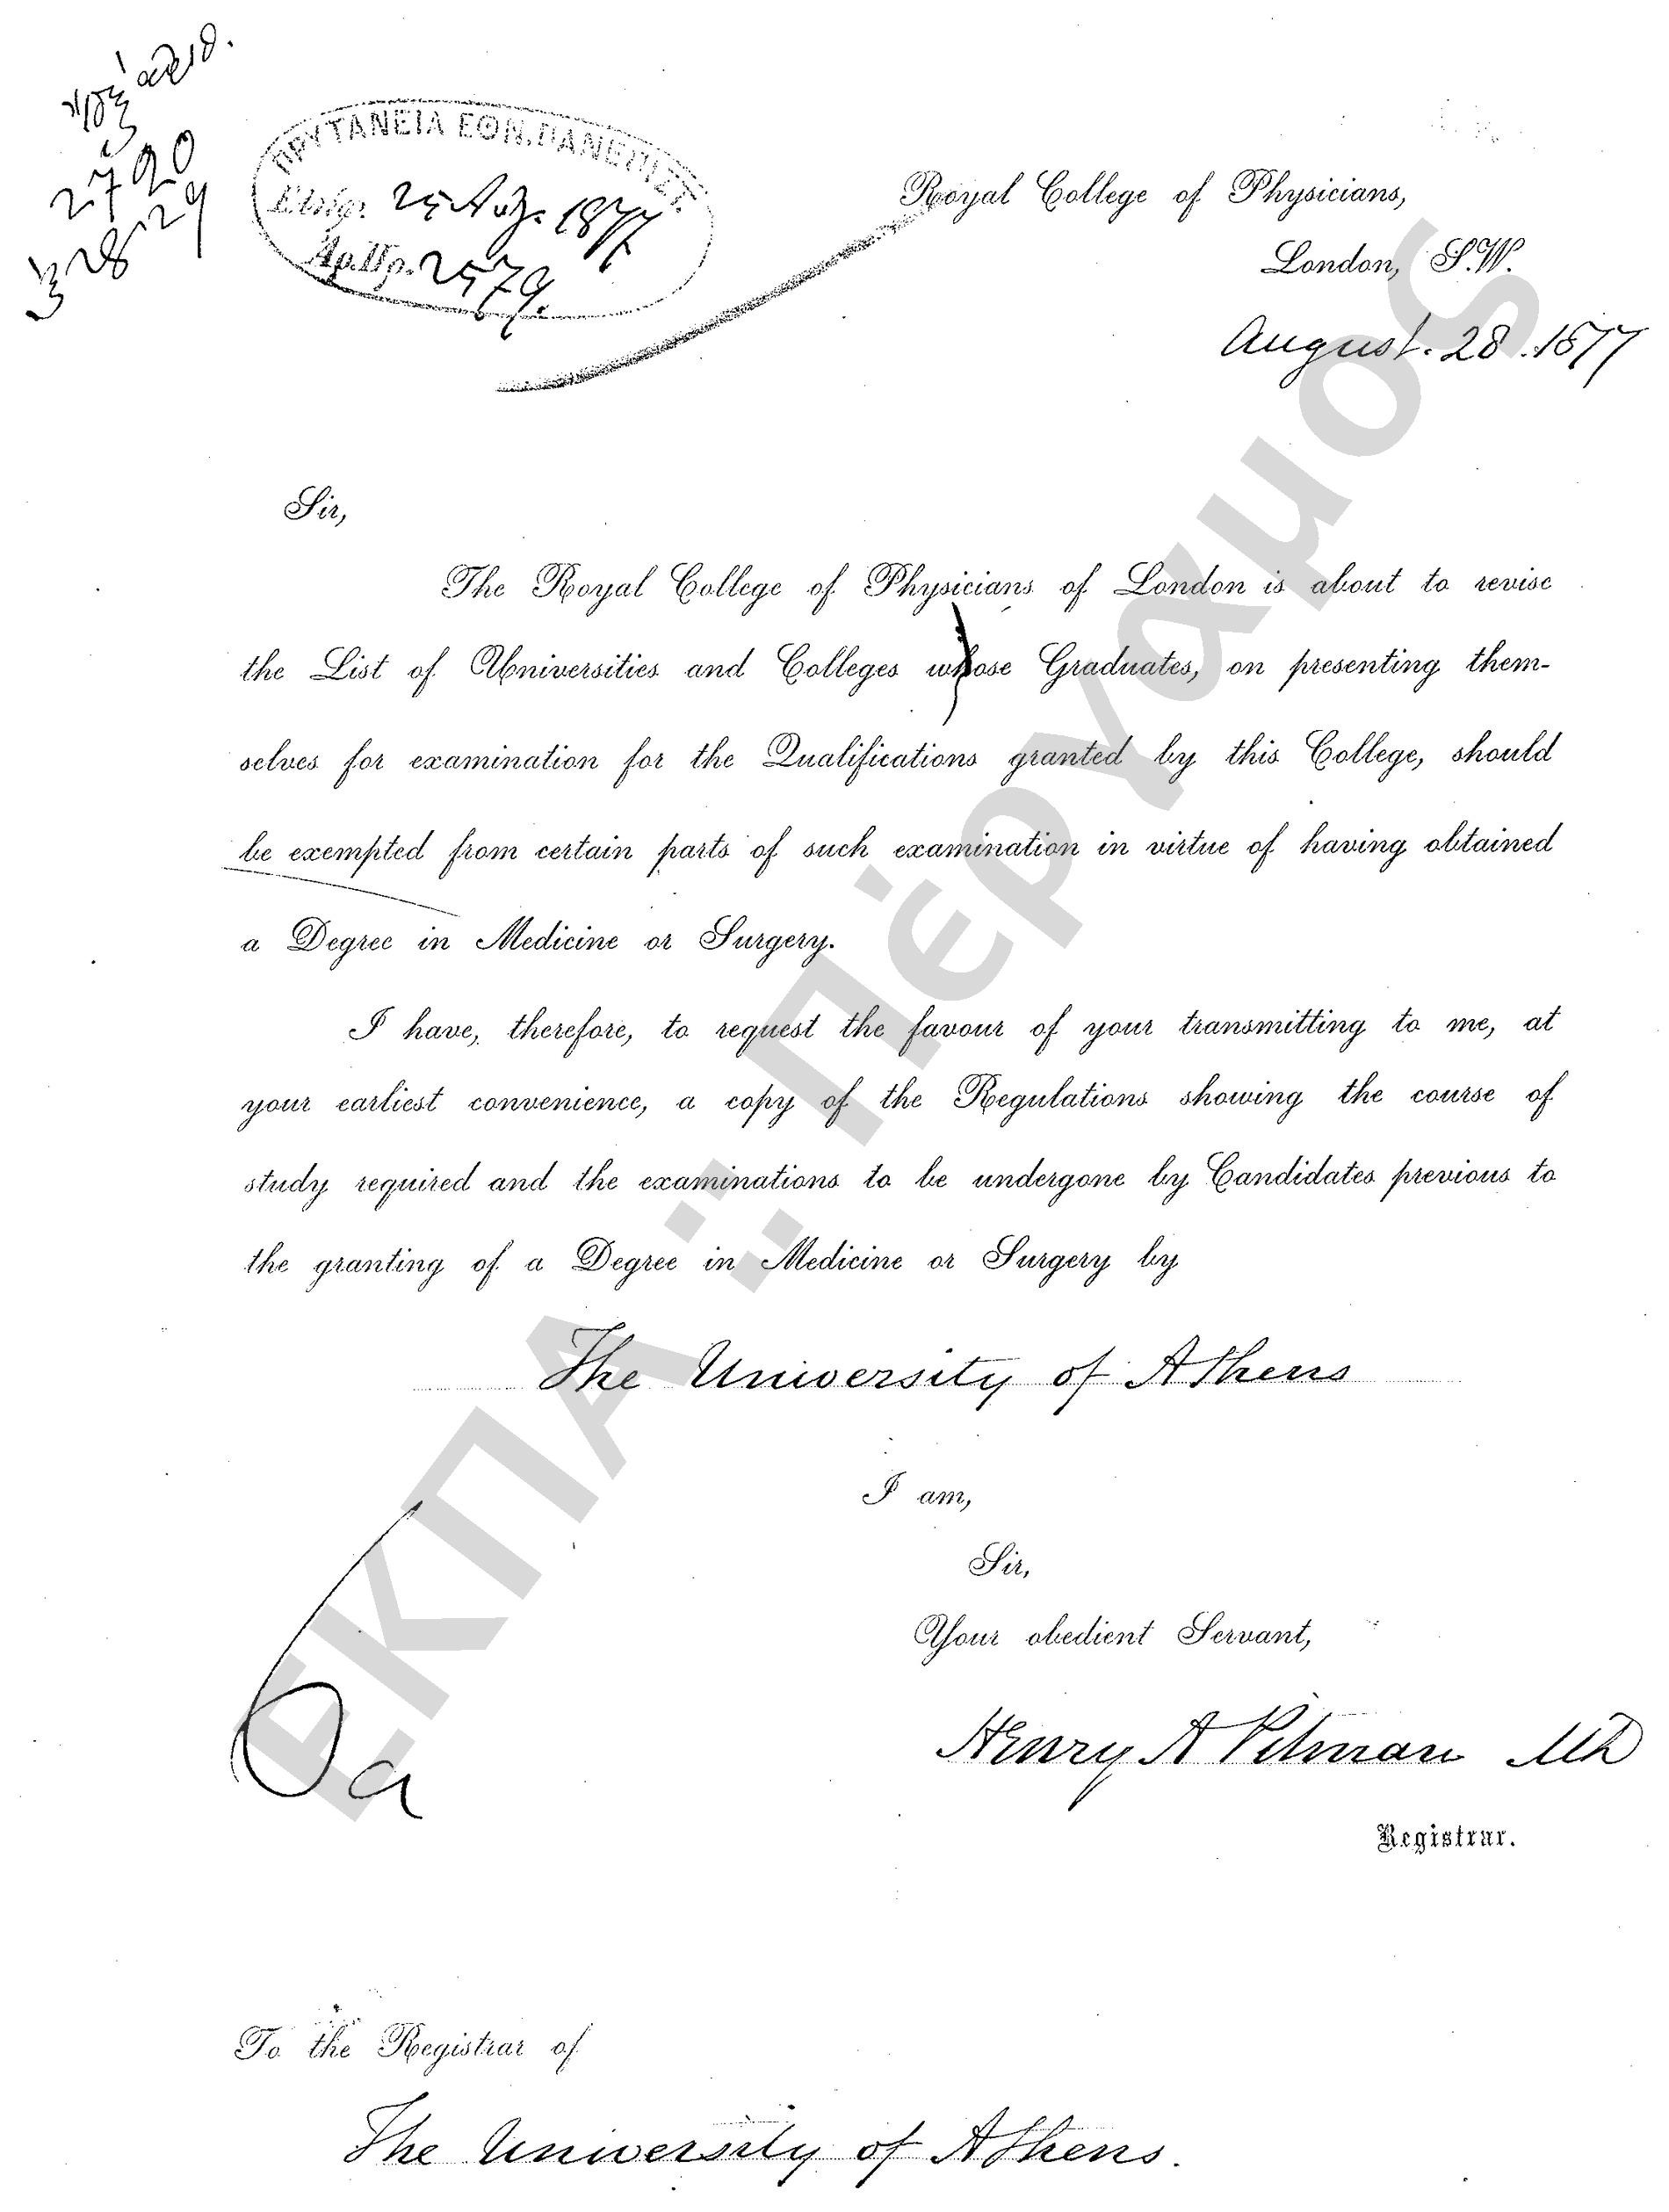 2720
ΠΡΥΤΑΝΕΙΑ ΕΘΝ. ΠΑΝΕΠΙΣΤ.
Εἰσήχ. 25 Αὐγ. 1877
Ἀρ. Πρ. 2579.
Royal College of Physicians,
London, S.W.
August. 28. 1877
Sir,
The Royal College of Physicians of London is about to revise
the List of Universities and Colleges whose Graduates, on presenting them-
selves for examination for the Qualifications granted by this College, should
be exempted from certain parts of such examination in virtue of having obtained
a Degree in Medicine or Surgery.
I have, therefore, to request the favour of your transmitting to me, at
your earliest convenience, a copy of the Regulations showing the course of
study required and the examinations to be undergone by Candidates previous to
the granting of a Degree in Medicine or Surgery by
The University of Athens
I am,
Sir,
Your obedient Servant,
Henry A Pitman MD
Registrar.
To the Registrar of
The University of Athens.
ΕΚΠΑ :: Πέργαμος